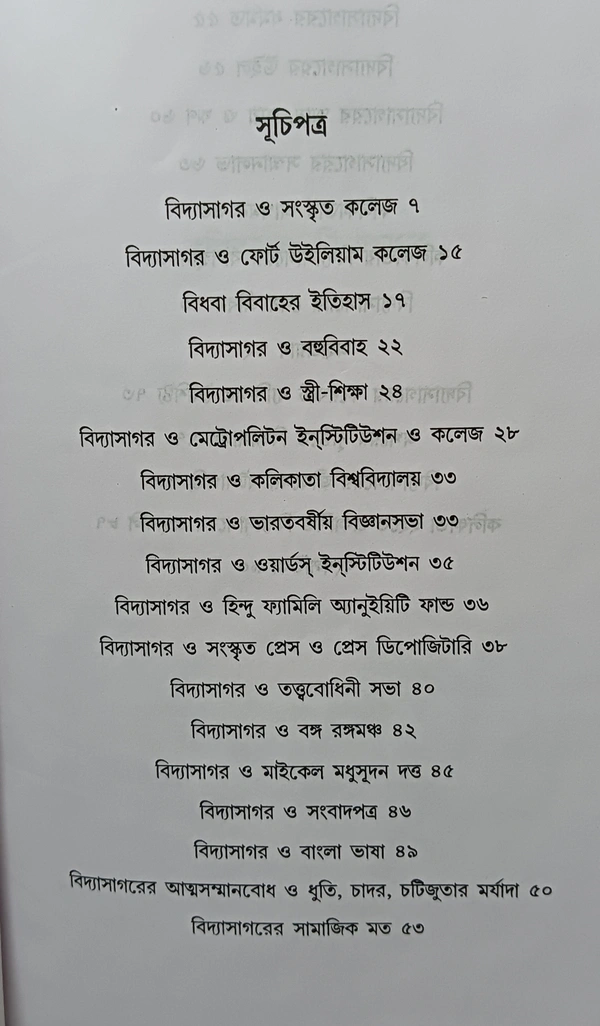 সূচিপত্র
বিদ্যাসাগর ও সংস্কৃত কলেজ ৭
বিদ্যাসাগর ও ফোর্ট উইলিয়াম কলেজ ১৫
বিধবা বিবাহের ইতিহাস ১৭
বিদ্যাসাগর ও বহুবিবাহ ২২
বিদ্যাসাগর ও স্ত্রী-শিক্ষা ২৪
বিদ্যাসাগর ও মেট্রোপলিটন ইন্‌স্টিটিউশন ও কলেজ ২৮
বিদ্যাসাগর ও কলিকাতা বিশ্ববিদ্যালয় ৩৩
বিদ্যাসাগর ও ভারতবর্ষীয় বিজ্ঞানসভা ৩৩
বিদ্যাসাগর ও ওয়ার্ডস্ ইন্‌স্টিটিউশন ৩৫
বিদ্যাসাগর ও হিন্দু ফ্যামিলি অ্যানুইয়িটি ফান্ড ৩৬
বিদ্যাসাগর ও সংস্কৃত প্রেস ও প্রেস ডিপোজিটারি ৩৮
বিদ্যাসাগর ও তত্ত্ববোধিনী সভা ৪০
বিদ্যাসাগর ও বঙ্গ রঙ্গমঞ্চ ৪২
বিদ্যাসাগর ও মাইকেল মধুসূদন দত্ত ৪৫
বিদ্যাসাগর ও সংবাদপত্র ৪৬
বিদ্যাসাগর ও বাংলা ভাষা ৪৯
বিদ্যাসাগরের আত্মসম্মানবোধ ও ধুতি, চাদর, চটিজুতার মর্যাদা ৫০
বিদ্যাসাগরের সামাজিক মত ৫৩